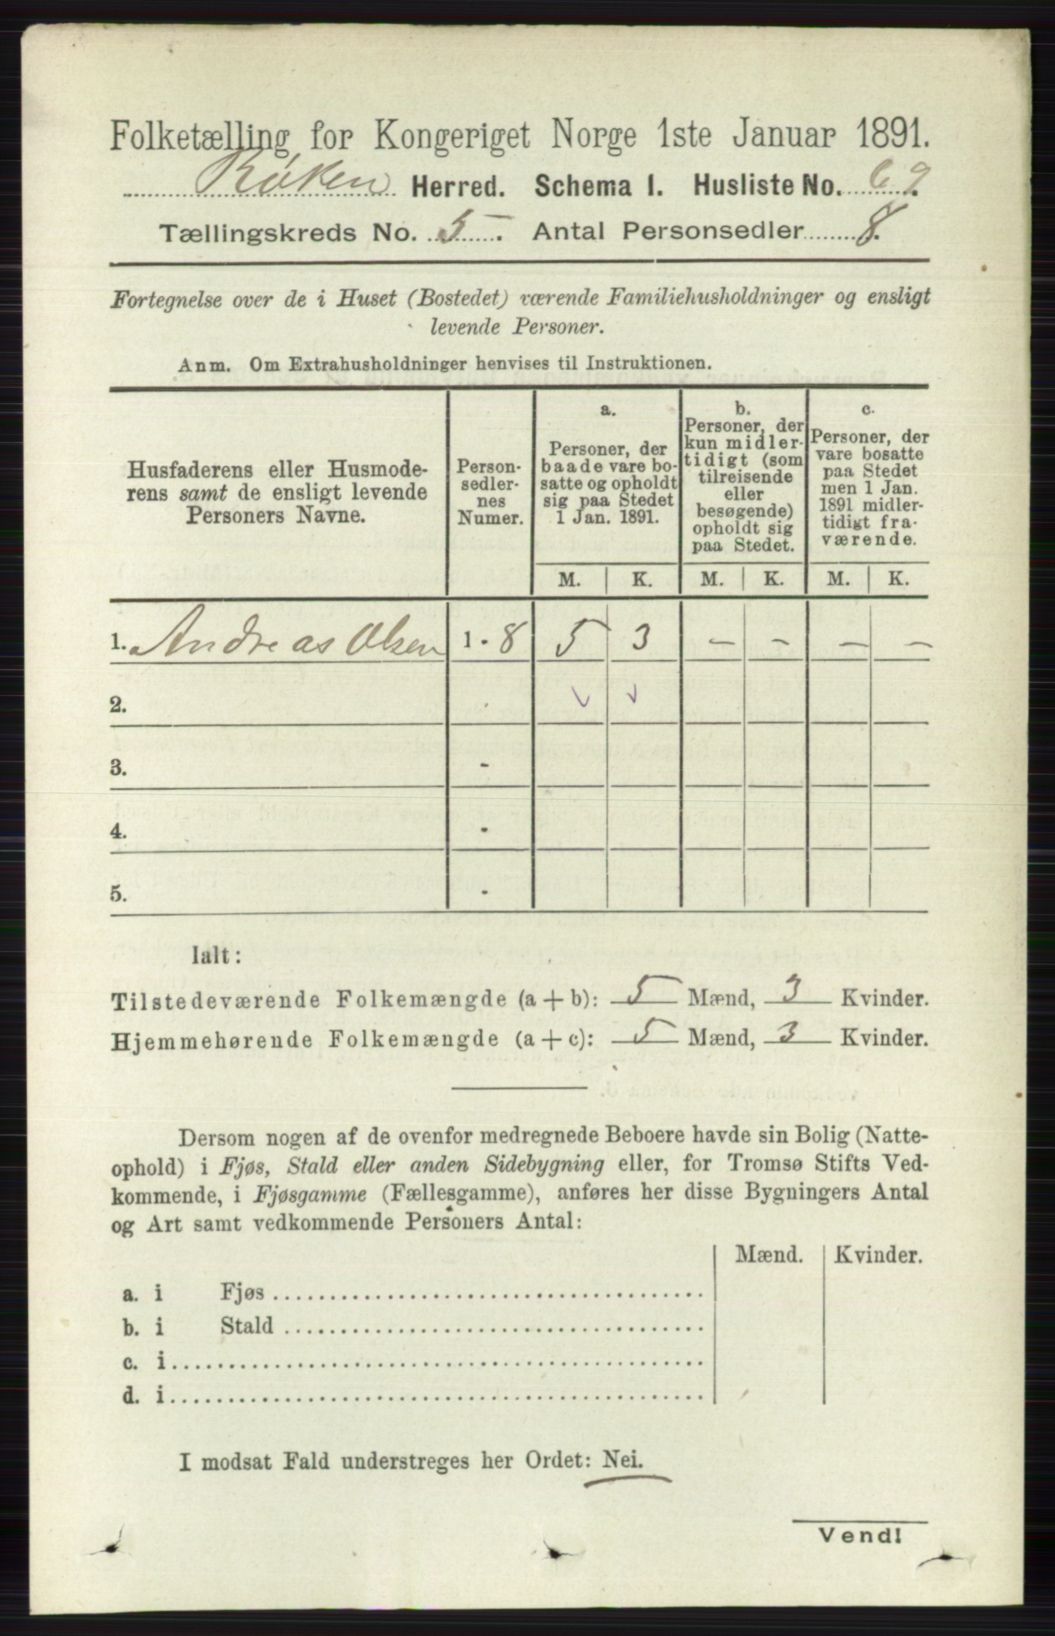 Folketælling for Kongeriget Norge 1ste Januar 1891.
Røken Herred. Schema I. Husliste No. 69.
Tællingskreds No. 5. Antal Personsedler 8.
Fortegnelse over de i Huset (Bostedet) værende Familiehusholdninger og ensligt
levende Personer.
Anm. Om Extrahusholdninger henvises til Instruktionen.
Husfaderens eller Husmode-
rens samt de ensligt levende
Personers Navne.
Person-
sedler-
nes
Numer.
a.
Personer, der
baade vare bo-
satte og opholdt
sig paa Stedet
1 Jan. 1891.
b.
Personer, der
kun midler-
tidigt (som
tilreisende
eller
besøgende)
opholdt sig
paa Stedet.
c.
Personer, der
vare bosatte
paa Stedet
men 1 Jan.
1891 midler-
tidigt fra-
værende.
M. K. M. K. M. K.
1. Andreas Olsen 1 - 8 5 3 - - - -
2.
3. -
4. -
5. -
Ialt:
Tilstedeværende Folkemængde (a + b): 5 Mænd, 3 Kvinder.
Hjemmehørende Folkemængde (a + c): 5 Mænd, 3 Kvinder.
Dersom nogen af de ovenfor medregnede Beboere havde sin Bolig (Natte-
ophold) i Fjøs, Stald eller anden Sidebygning eller, for Tromsø Stifts Ved-
kommende, i Fjøsgamme (Fællesgamme), anføres her disse Bygningers Antal
og Art samt vedkommende Personers Antal:
Mænd. Kvinder.
a. i Fjøs
b. i Stald
c. i
d. i
I modsat Fald understreges her Ordet: Nei.
Vend!